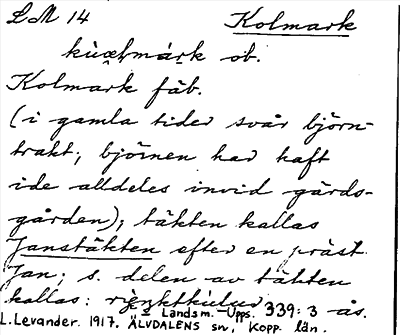 LM 14 Kolmark
kùœlmárk ob.
Kolmark fäb.
(i gamla tider svår björn-
trakt; björnen har haft
ide alldeles invid gärds-
gården); täkten kallas
Janstäkten efter en präst
Jan; s. delen av täkten
kallas: ås.
Landsm. Upps. 339:3
L. Levander. 1917. ÄLVDALENS sn, Kopp. län.